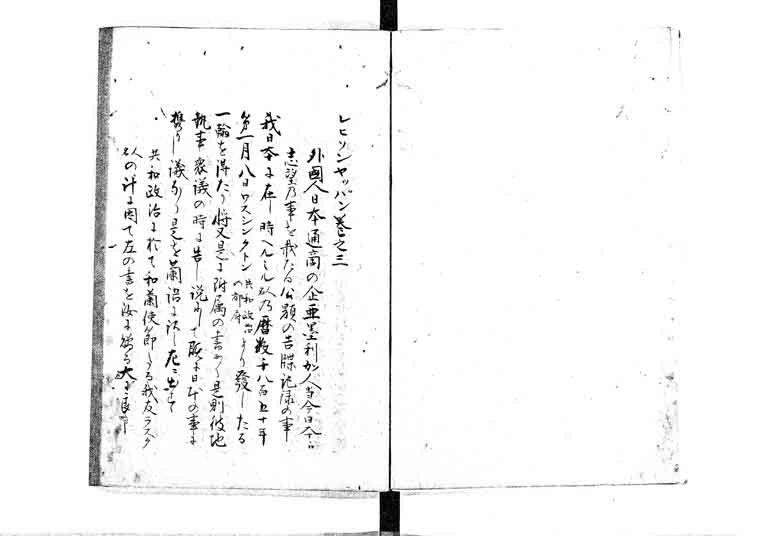 レヒソンヤッパン巻之三
外國人日本通商の企亜墨利加人当今日本に
志望乃事を載たる公願の告牒記録の事
我日本に在し時ヘルミル人乃暦数千八百五十年
第一月八日ワスシンクトン共和政治の都府より發したる
一論を得たり将又是に附属の書あり是則彼地
執事衆議の時に告し説にして日本の事に
議
是を蘭語に訳し左に出す
共和政治に於て和蘭使節たる我友ラスタ
人の計に因て左の書を汝に贈る大